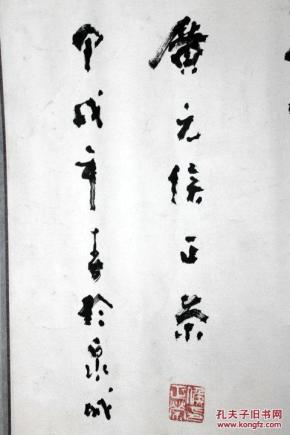 廣元侯正荣
甲戌年春於泉城
孔夫子旧书网
www.kongfz.com